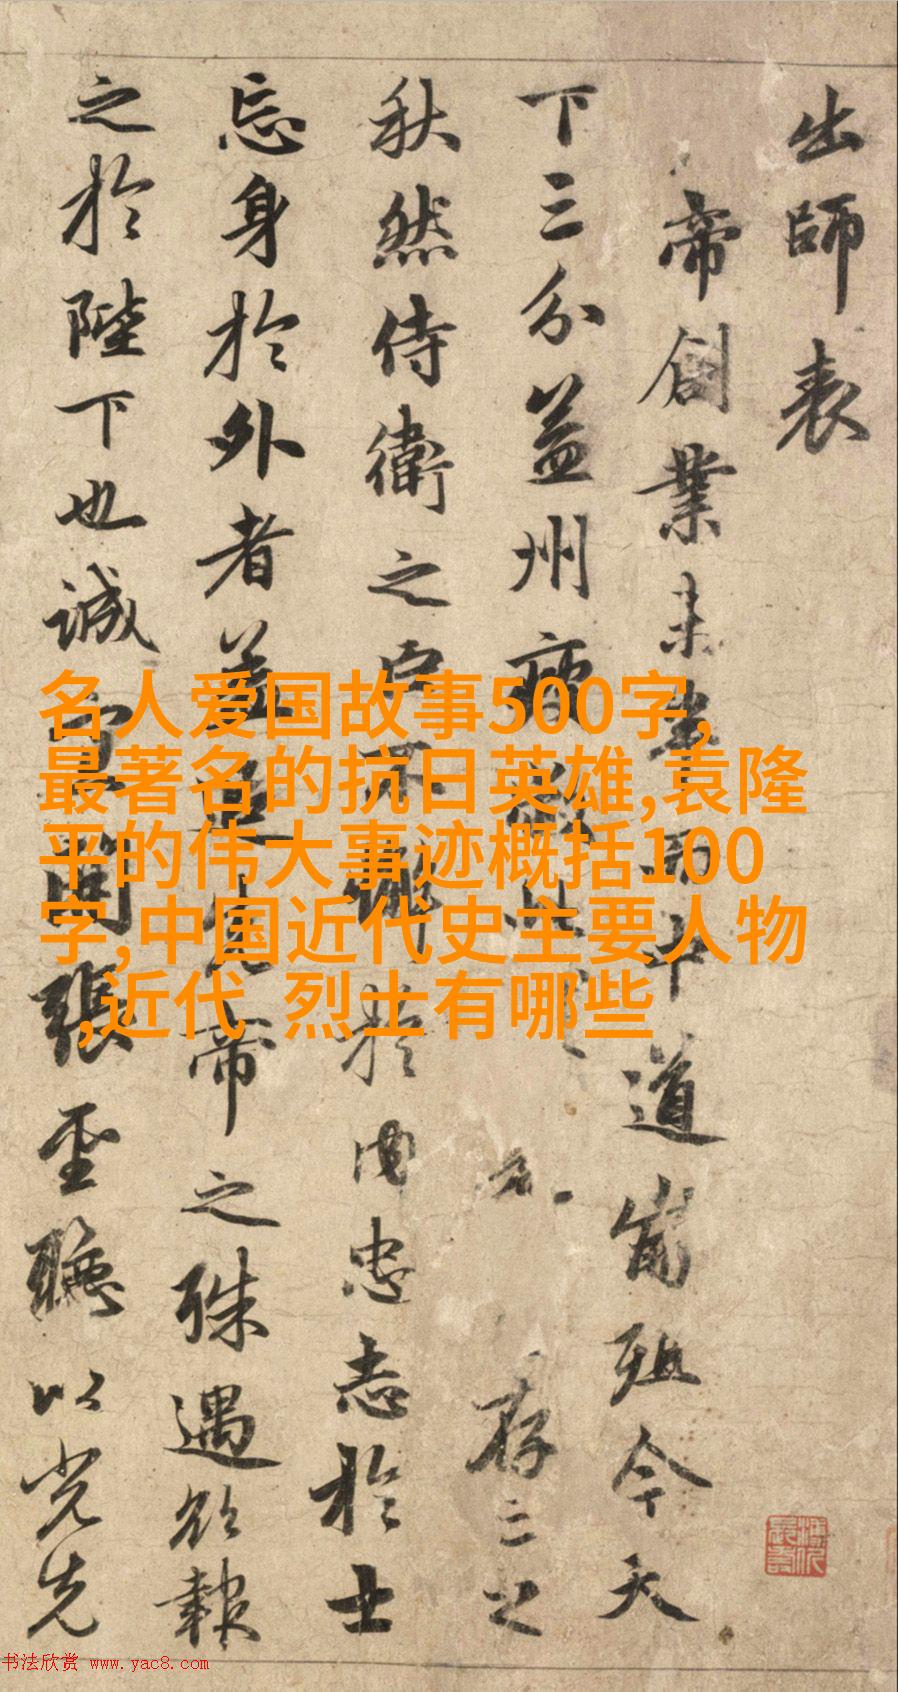 出師表
帝創業未半而中道崩殂今天
下三分益州疲敝此 存亡之
秋然侍衛之臣不懈於内忠志於士
忘身於外者蓋追先帝之殊遇欲報
之於陛下也誠宜開張聖聽以光先
名人爱国故事500字,
最著名的抗日英雄,袁隆
平的伟大事迹概括100
字,中国近代史主要人物
,近代 烈士有哪些
书法欣赏 www.yac8.com